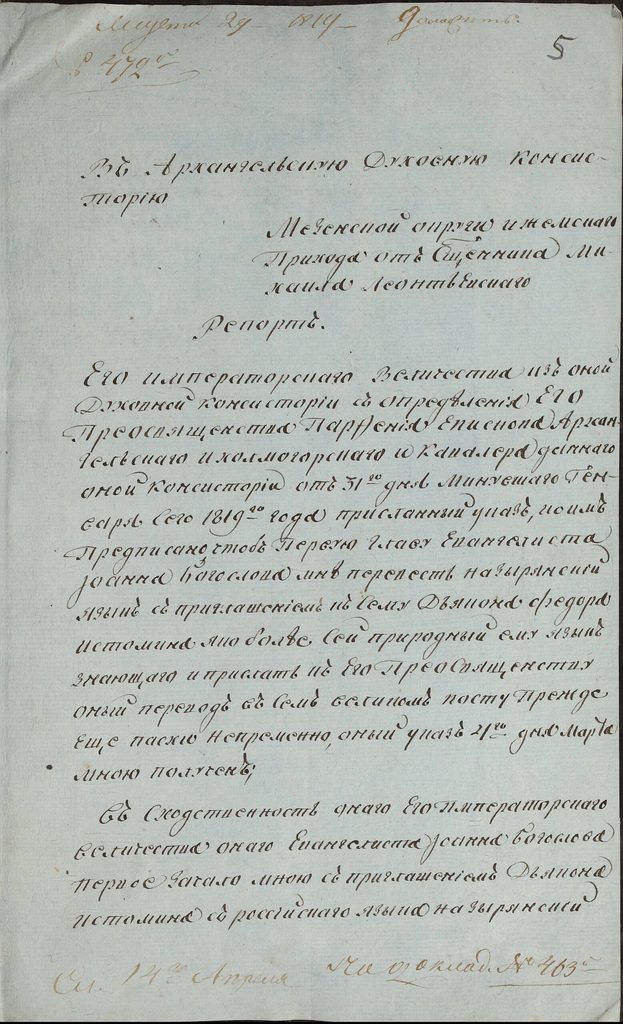 Марта 29 1819 Доложить
№ 479
5
Въ Архангельскую Духовную Консис-
торію
Мезенской округи ижемскаго
Прихода отъ Священника Ми-
хаила Леонтьевскаго
Репортъ.
Его императорскаго Величества изъ оной
Духовной Консисторіи съ определенія Его
Преосвященства Парѳенія Епископа Архан-
гельскаго и холмогорскаго и Кавалера даннаго
оной Консисторіи отъ 31го дня Минувшаго Ген-
варя Сего 1819го года присланный указъ, коимъ
Предписано, чтобъ Первую главу Евангелиста
Іоанна Богослова мнѣ перевесть на зырянскій
языкъ съ приглашеніемъ къ Сему Дьякона федора
истомина яко болѣе Сей природный ему языкъ
знающаго и прислать къ Его ПреоСвященству
оный переводъ въ Семъ великомъ посту Прежде
еще пасхи непременно, оный указъ 21го дня Марта
мною полученъ;
Въ Сходственность онаго Его Императорскаго
величества онаго Евангелиста Іоанна Богослова
первое Зачало мною съ приглашеніемъ Дьякона
истомина съ россійскаго языка на зырянскій
14го Апреля На доклад. № 463